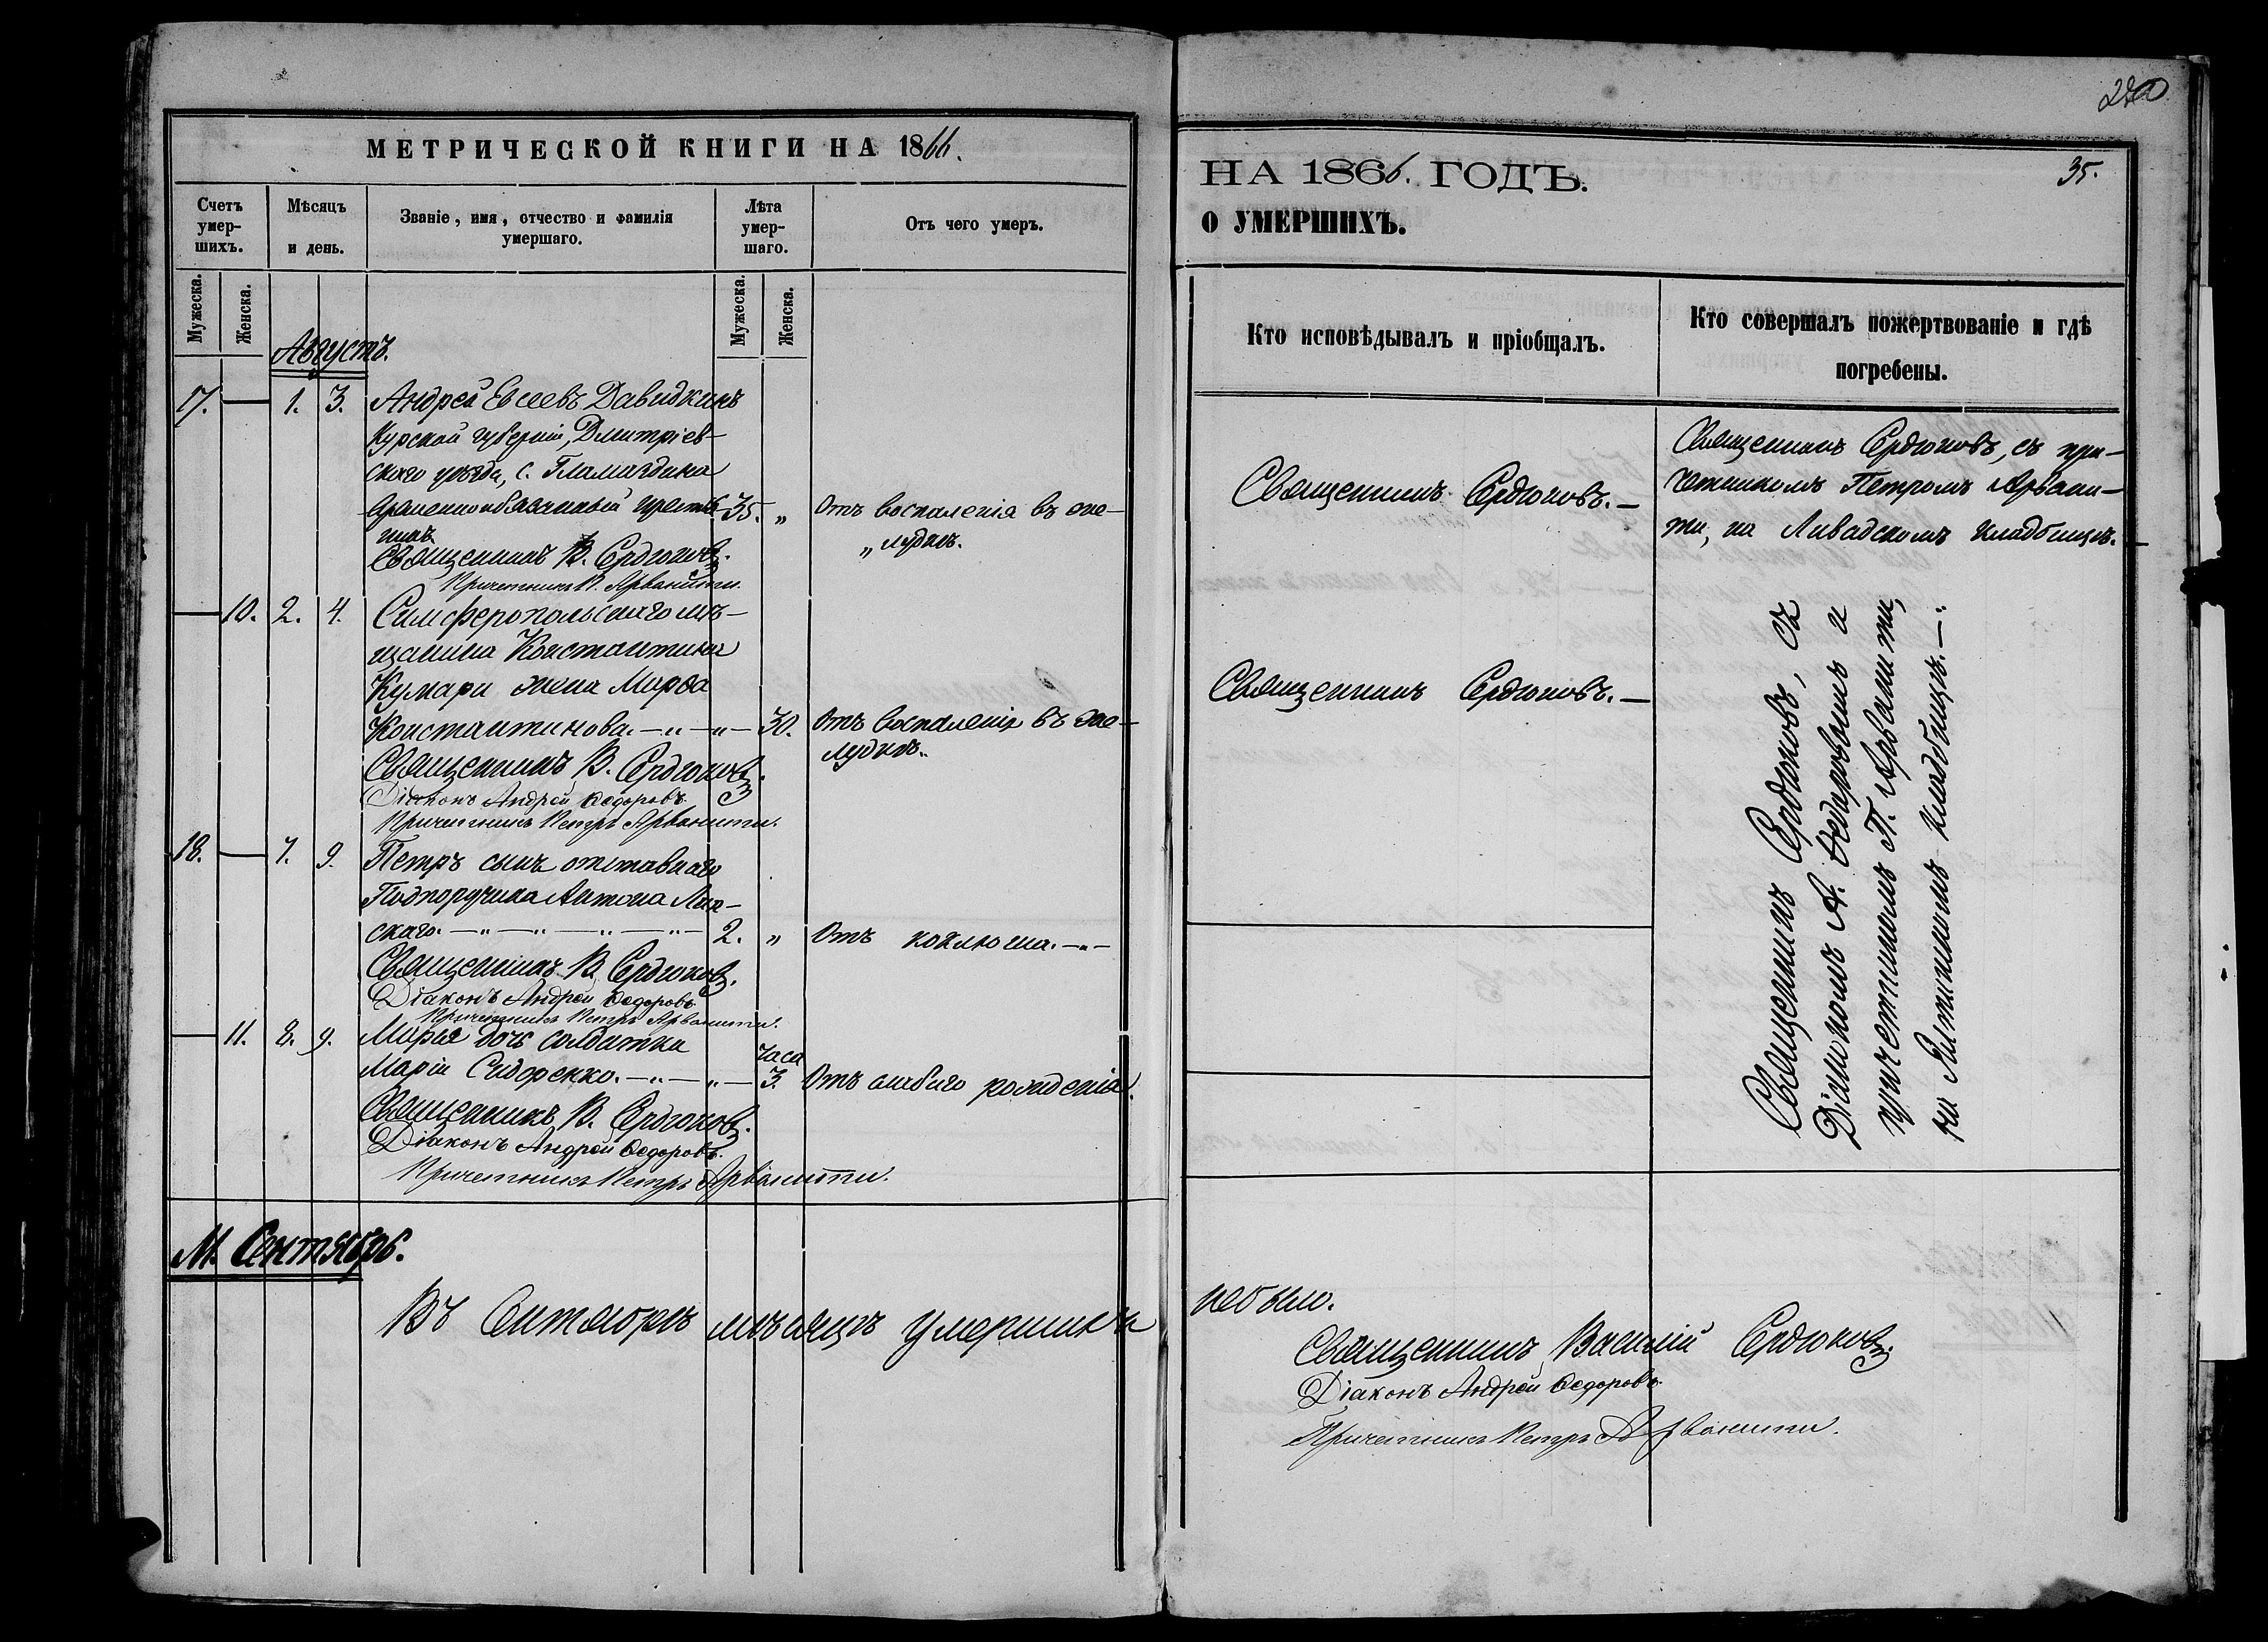 МЕТРИЧЕСКОЙ КНИГИ НА 1866.
Счетъ умер-шихъ.
Мѣсяцъ и день.
Званіе, имя, отчество и фамилія умершаго.
Лѣта умер-шаго.
Отъ чего умеръ.
Мужеска.
Женска.
Мужеска.
Женска.
Августъ.
17. — 1. 3. Андрей Евсеевъ Давидкинъ
Курской губерніи, Дмитріев-
скаго уѣзда, с.
временнообязанный кресть- 35. „ Отъ воспаленія въ же-
нинъ „лудкѣ.
Священникъ В. Сердюковъ.
Причетникъ П. Арванити.
— 10. 2. 4. Симферопольскаго мѣ-
щанина Константина
Кумари жена Марѳа
Константинова. —„—„— 30. Отъ воспаленія въ же-
лудкѣ.
Священникъ В. Сердюковъ.
Діаконъ Андрей Ѳедоровъ.
Причетникъ Петръ Арванити.
18. — 7. 9. Петръ сынъ отставнаго
Подпоручика Антона Лип-
скаго. —„—„—„—„— 2. „ Отъ коклюша. —„—
Священникъ В. Сердюковъ.
Діаконъ Андрей Ѳедоровъ.
Причетникъ Петръ Арванити.
— 11. 8. 9. Марья дочь солдатки часа
Маріи Сидоренко. —„—„— 3. Отъ слабаго рожденія.
Священникъ В. Сердюковъ.
Діаконъ Андрей Ѳедоровъ.
Причетникъ Петръ Арванити.
М. Сентябрь.
Въ Сентябрѣ мѣсяцѣ умершихъ
280
НА 1866. ГОДЪ.
35.
О УМЕРШИХЪ.
Кто исповѣдывалъ и пріобщалъ.
Кто совершалъ пожертвованіе и гдѣ погребены.
Священникъ Сердюковъ. —
Священникъ Сердюковъ, съ при-
четникомъ Петромъ Арвани-
ти, на Ливадскомъ кладбищѣ. —
Священникъ Сердюковъ. —
Священникъ Сердюковъ, съ
Діакономъ А. Ѳедоровымъ и
причетникомъ П. Арванити,
на кладбищѣ. —
небыло.
Священникъ Василій Сердюковъ.
Діаконъ Андрей Ѳедоровъ.
Причетникъ Петръ Арванити.